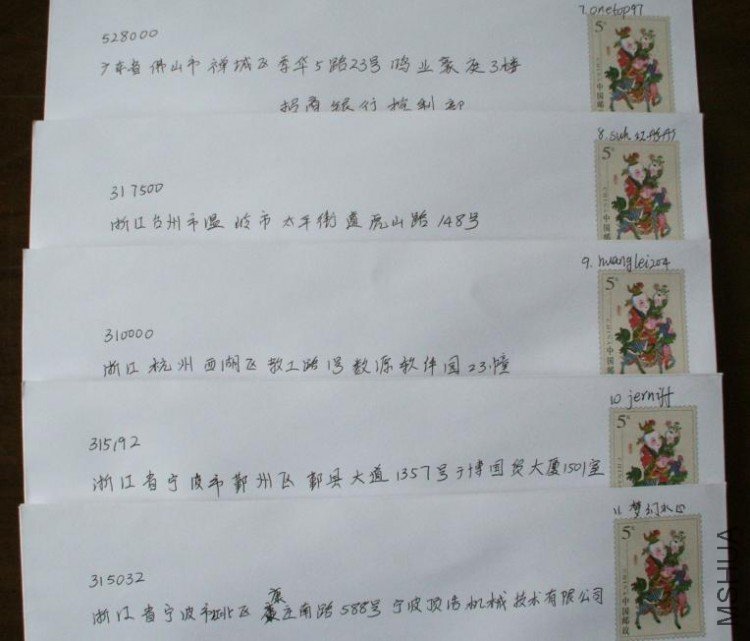 7. onetop97
528000
广东省佛山市禅城区季华5路23号鸿业豪庭3楼
招商银行控制部
8. suk
317500
浙江台州市温岭市太平街道虎山路148号
9. huanglei204
310000
浙江杭州西湖区教工路1号数源软件园23幢
10 jerniff
315192
浙江省宁波市鄞州区鄞县大道1357号广博国贸大厦1501室
11. 梦幻水
315032
浙江省宁波市江北区庄南路588号宁波顶浩机械技术有限公司
中国邮政
MSHUA